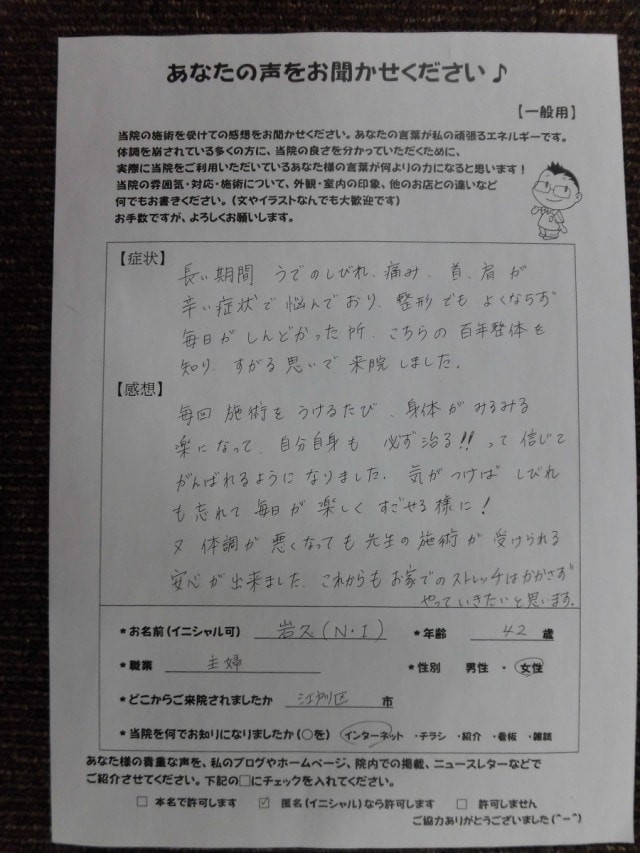 あなたの声をお聞かせください♪
【一般用】
当院の施術を受けての感想をお聞かせください。あなたの言葉が私の頑張るエネルギーです。
体調を崩されている多くの方に、当院の良さを分かっていただくために、
実際に当院をご利用いただいているあなた様の言葉が何よりの力になると思います！
当院の雰囲気・対応・施術について、外観・室内の印象、他のお店との違いなど
何でもお書きください。（文やイラストなんでも大歓迎です）
お手数ですが、よろしくお願いします。
【症状】
長い期間 うでのしびれ、痛み、首、肩が
辛い症状で悩んでおり、整形でもよくならず
毎日がしんどかった所、こちらの百年整体を
知り、すがる思いで来院しました。
【感想】
毎回施術をうけるたび、身体がみるみる
楽になって、自分自身も 必ず治る!! って信じて
がんばれるようになりました。気がつけばしびれ
も忘れて毎日が楽しくすごせる様に！
又体調が悪くなっても先生の施術が受けられる
安心が出来ました。これからもお家でのストレッチはかかさず
やっていきたいと思います。
*お名前(イニシャル可) 岩久(N・I) *年齢 42 歳
*職業 主婦 *性別 男性 ・ 女性
*どこからご来院されましたか 市
*当院を何でお知りになりましたか(○を) インターネット ・チラシ ・紹介 ・看板 ・雑誌
あなた様の貴重な声を、私のブログやホームページ、院内での掲載、ニュースレターなどで
ご紹介させてください。下記の□にチェックを入れてください。
□ 本名で許可します ☑ 匿名(イニシャル)なら許可します □ 許可しません
ご協力ありがとうございました(^-^)